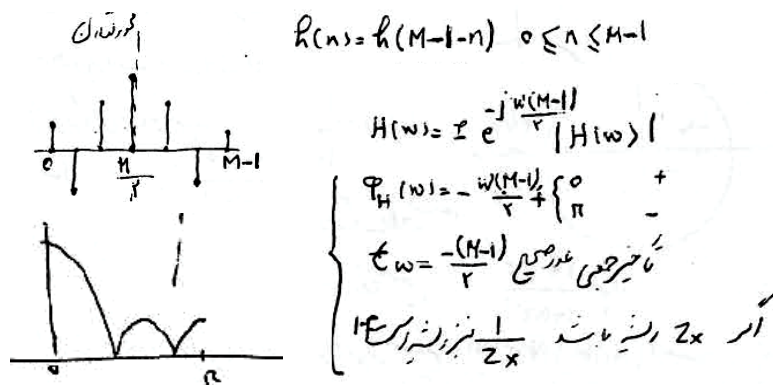 محور تقارن
h(n) = h(M-1-n) 0 ≤ n ≤ M-1
0 M/۲ M-1
H(ω) = ± e^{-jω(M-1)/۲} |H(ω)|
φ_H(ω) = -ω(M-1)/۲ + { 0 +
π -
τω = -(M-1)/۲ تاخیر جمعی عدد صحیح
اگر Zx ریشه باشد 1/Zx نیز ریشه است
0 π